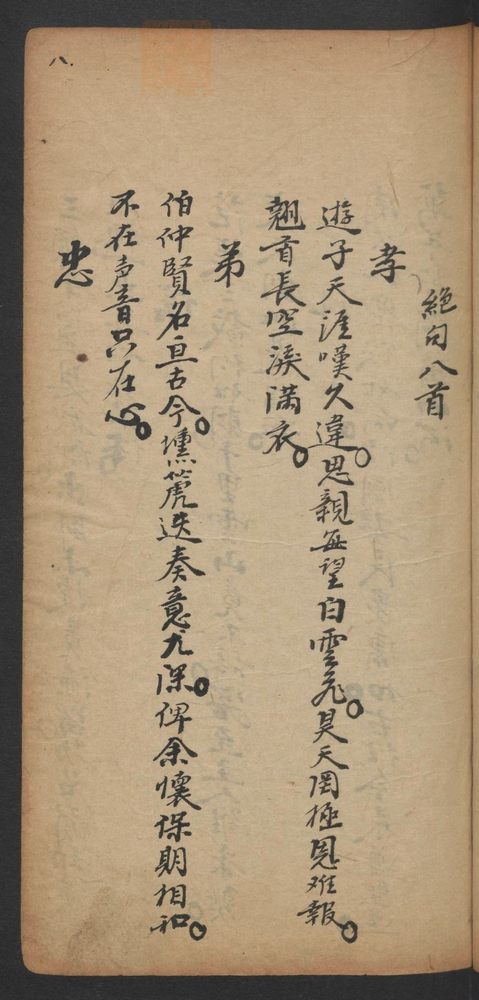 八.
絕句八首
孝
遊子天涯嘆久違。思親每望白雲飛。昊天罔極恩难報。
翹首長空淚满衣。
弟
伯仲賢名亘古今。壎篪迭奏意尤深。俾余懷保期相和。
不在声音只在心。
忠